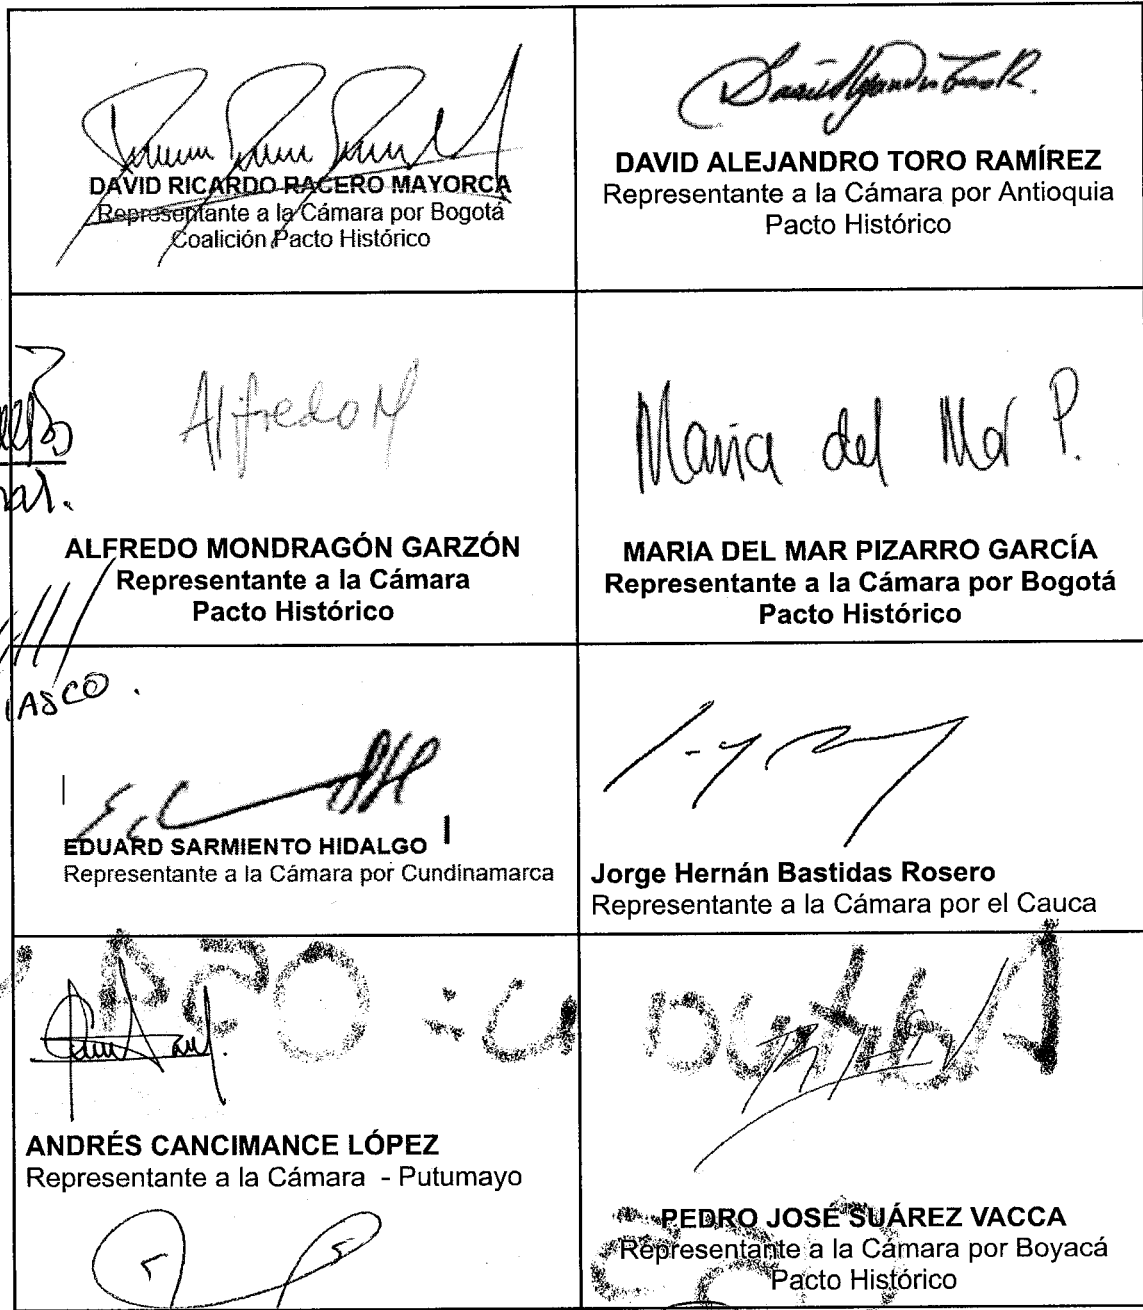 DAVID RICARDO RACERO MAYORCA
Representante a la Cámara por Bogotá
Coalición Pacto Histórico
DAVID ALEJANDRO TORO RAMÍREZ
Representante a la Cámara por Antioquia
Pacto Histórico
Alfredo M
ALFREDO MONDRAGÓN GARZÓN
Representante a la Cámara
Pacto Histórico
Maria del Mar P.
MARIA DEL MAR PIZARRO GARCÍA
Representante a la Cámara por Bogotá
Pacto Histórico
EDUARD SARMIENTO HIDALGO
Representante a la Cámara por Cundinamarca
Jorge Hernán Bastidas Rosero
Representante a la Cámara por el Cauca
ANDRÉS CANCIMANCE LÓPEZ
Representante a la Cámara - Putumayo
PEDRO JOSÉ SUÁREZ VACCA
Representante a la Cámara por Boyacá
Pacto Histórico